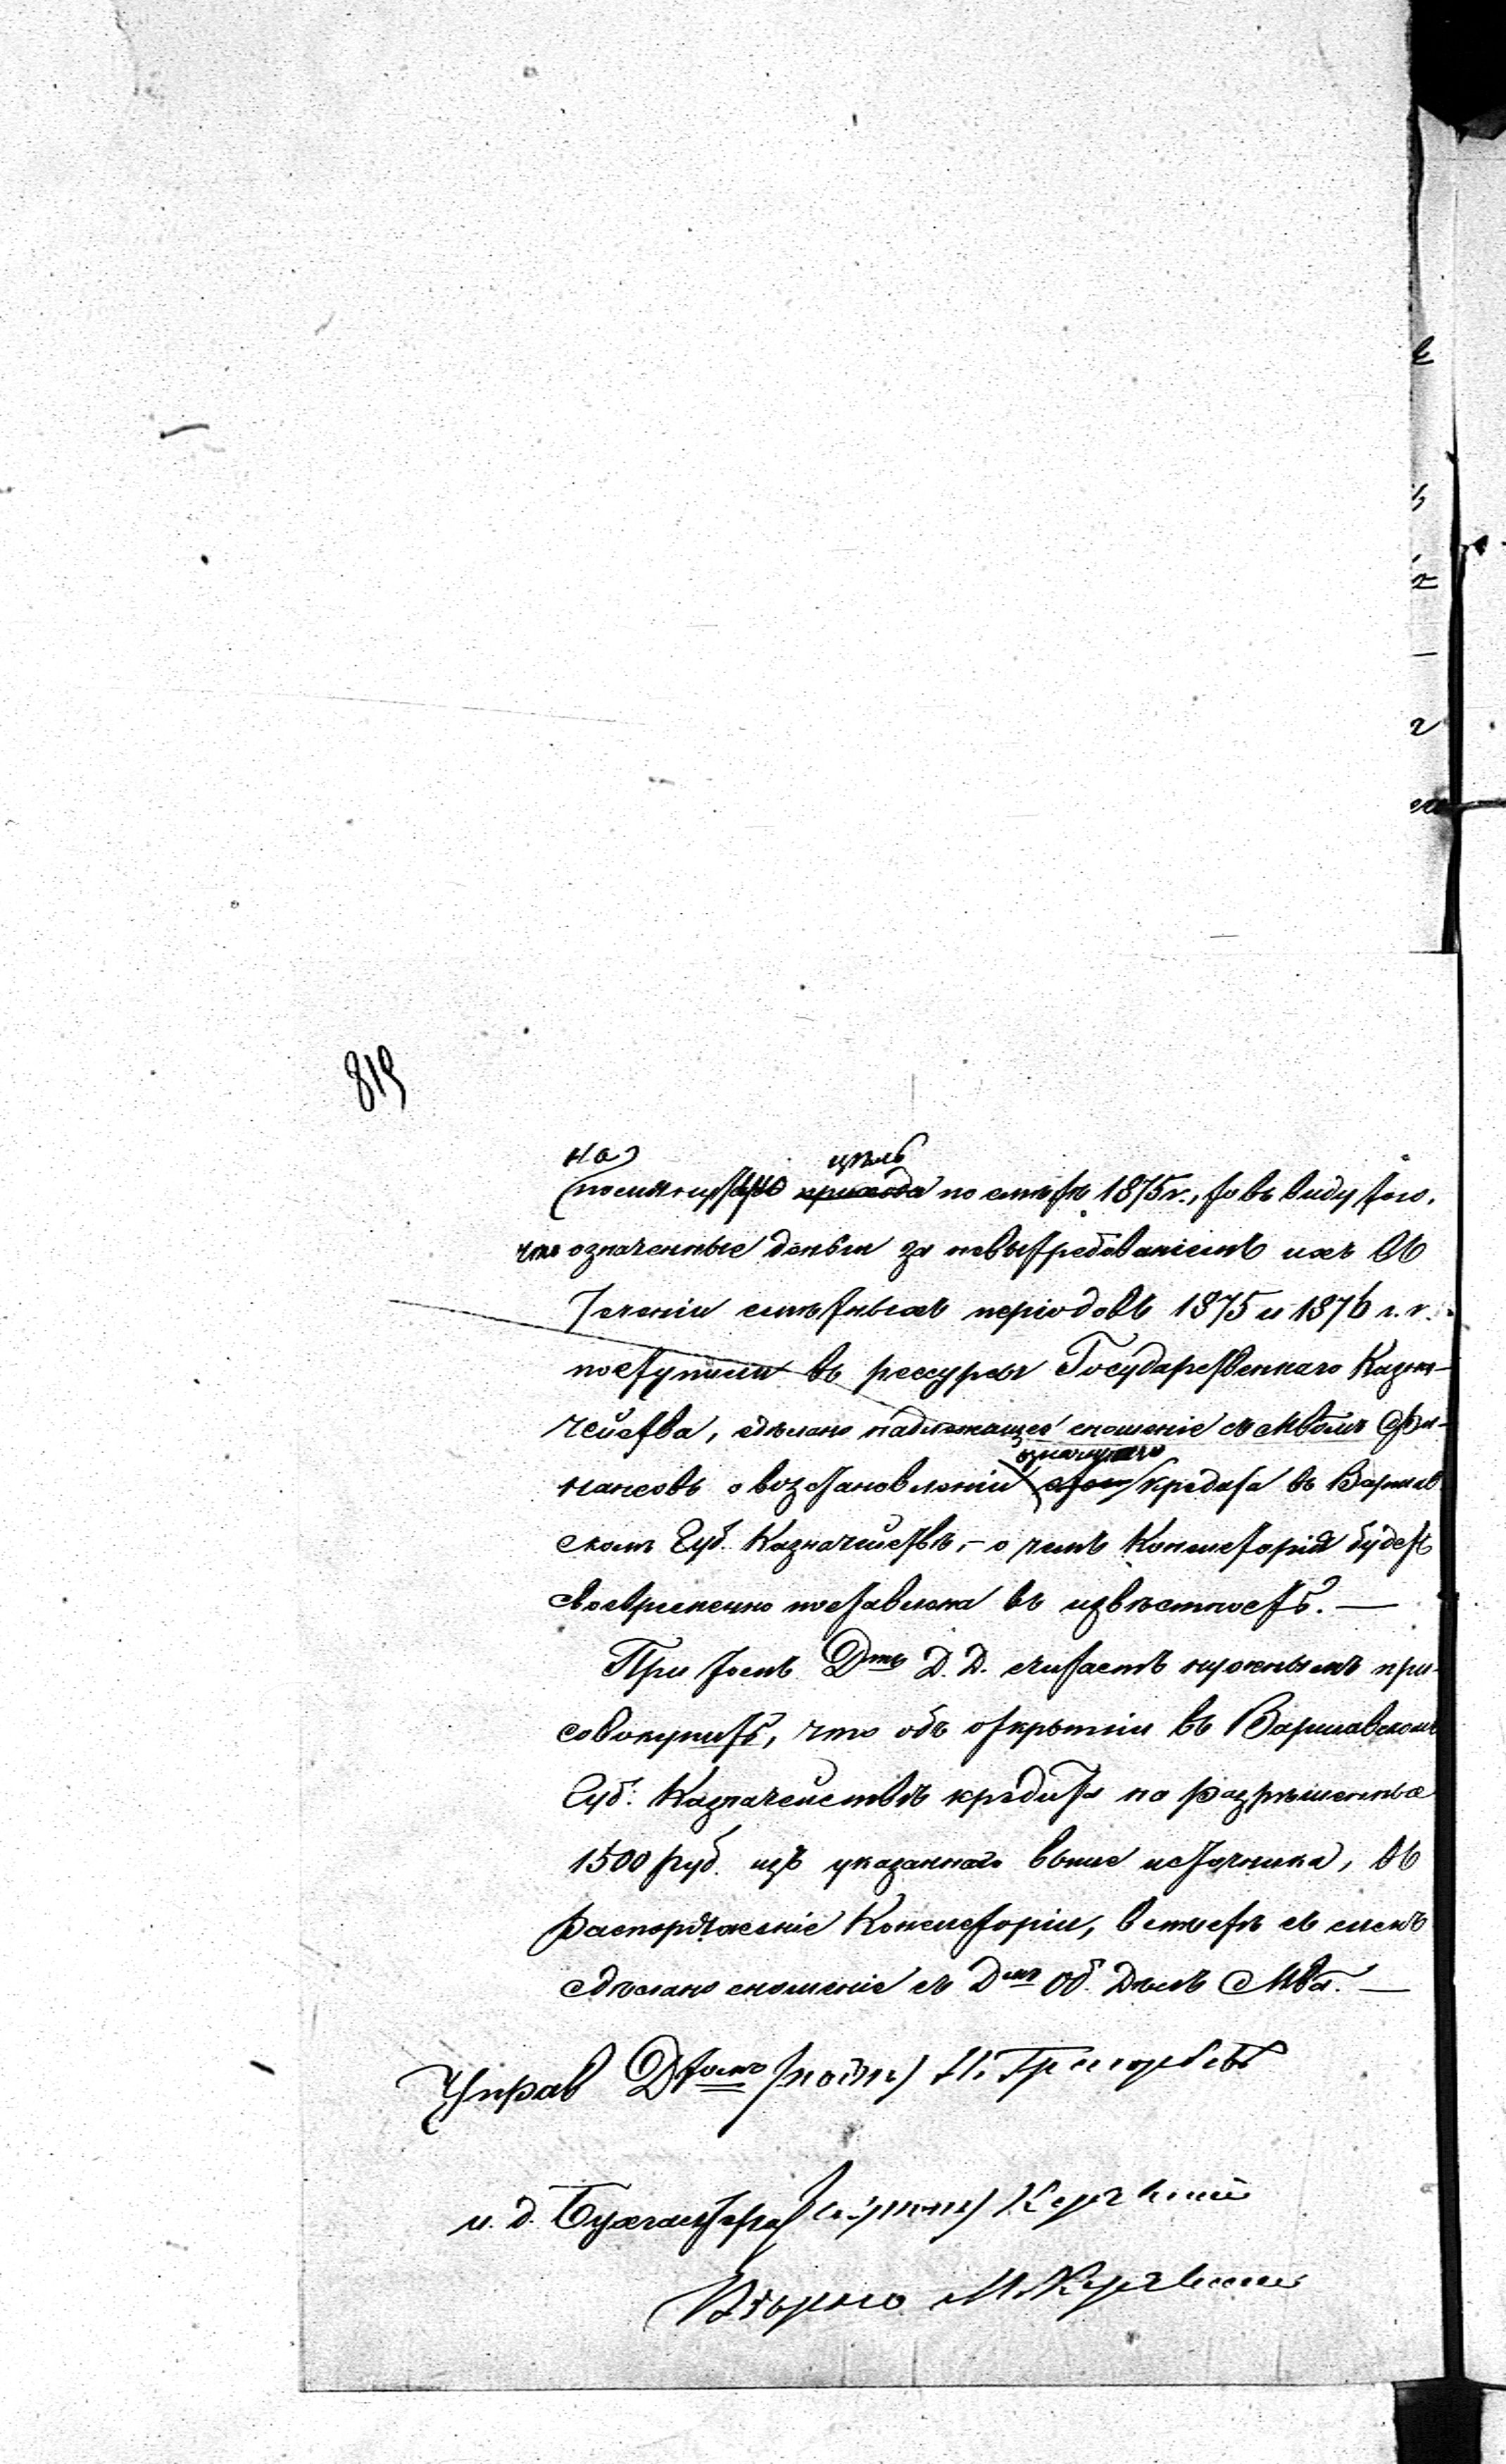 819
на цель
~~прихода~~ по смѣтѣ 1875 г., то въ виду того,
что означенныя деньги за невытребованіемъ ихъ въ
теченіи смѣтныхъ періодовъ 1875 и 1876 г.г.
поступили въ рессурсы Государственнаго Казна-
чейства, сдѣлано надлежащее сношеніе съ Мвомъ Фи-
означеннаго
нансовъ о возстановленіи кредита въ Варшав-
скомъ Губ. Казначействѣ, – о чемъ Консисторія будетъ
своевременно поставлена въ извѣстность. —
При томъ Дтъ Д. Д. считаетъ нужнымъ при-
совокупить, что объ открытіи въ Варшавскомъ
Губ. Казначействѣ кредита на разрѣшенные
1500 руб. изъ указаннаго выше источника, въ
распоряженіе Консисторіи, вмѣстѣ съ симъ
сдѣлано сношеніе съ Дмъ Об. Дѣлъ Мва. —
Управ Дтомъ (подп.) Григорьевъ
и. д. Бухгалтера
Вѣрно